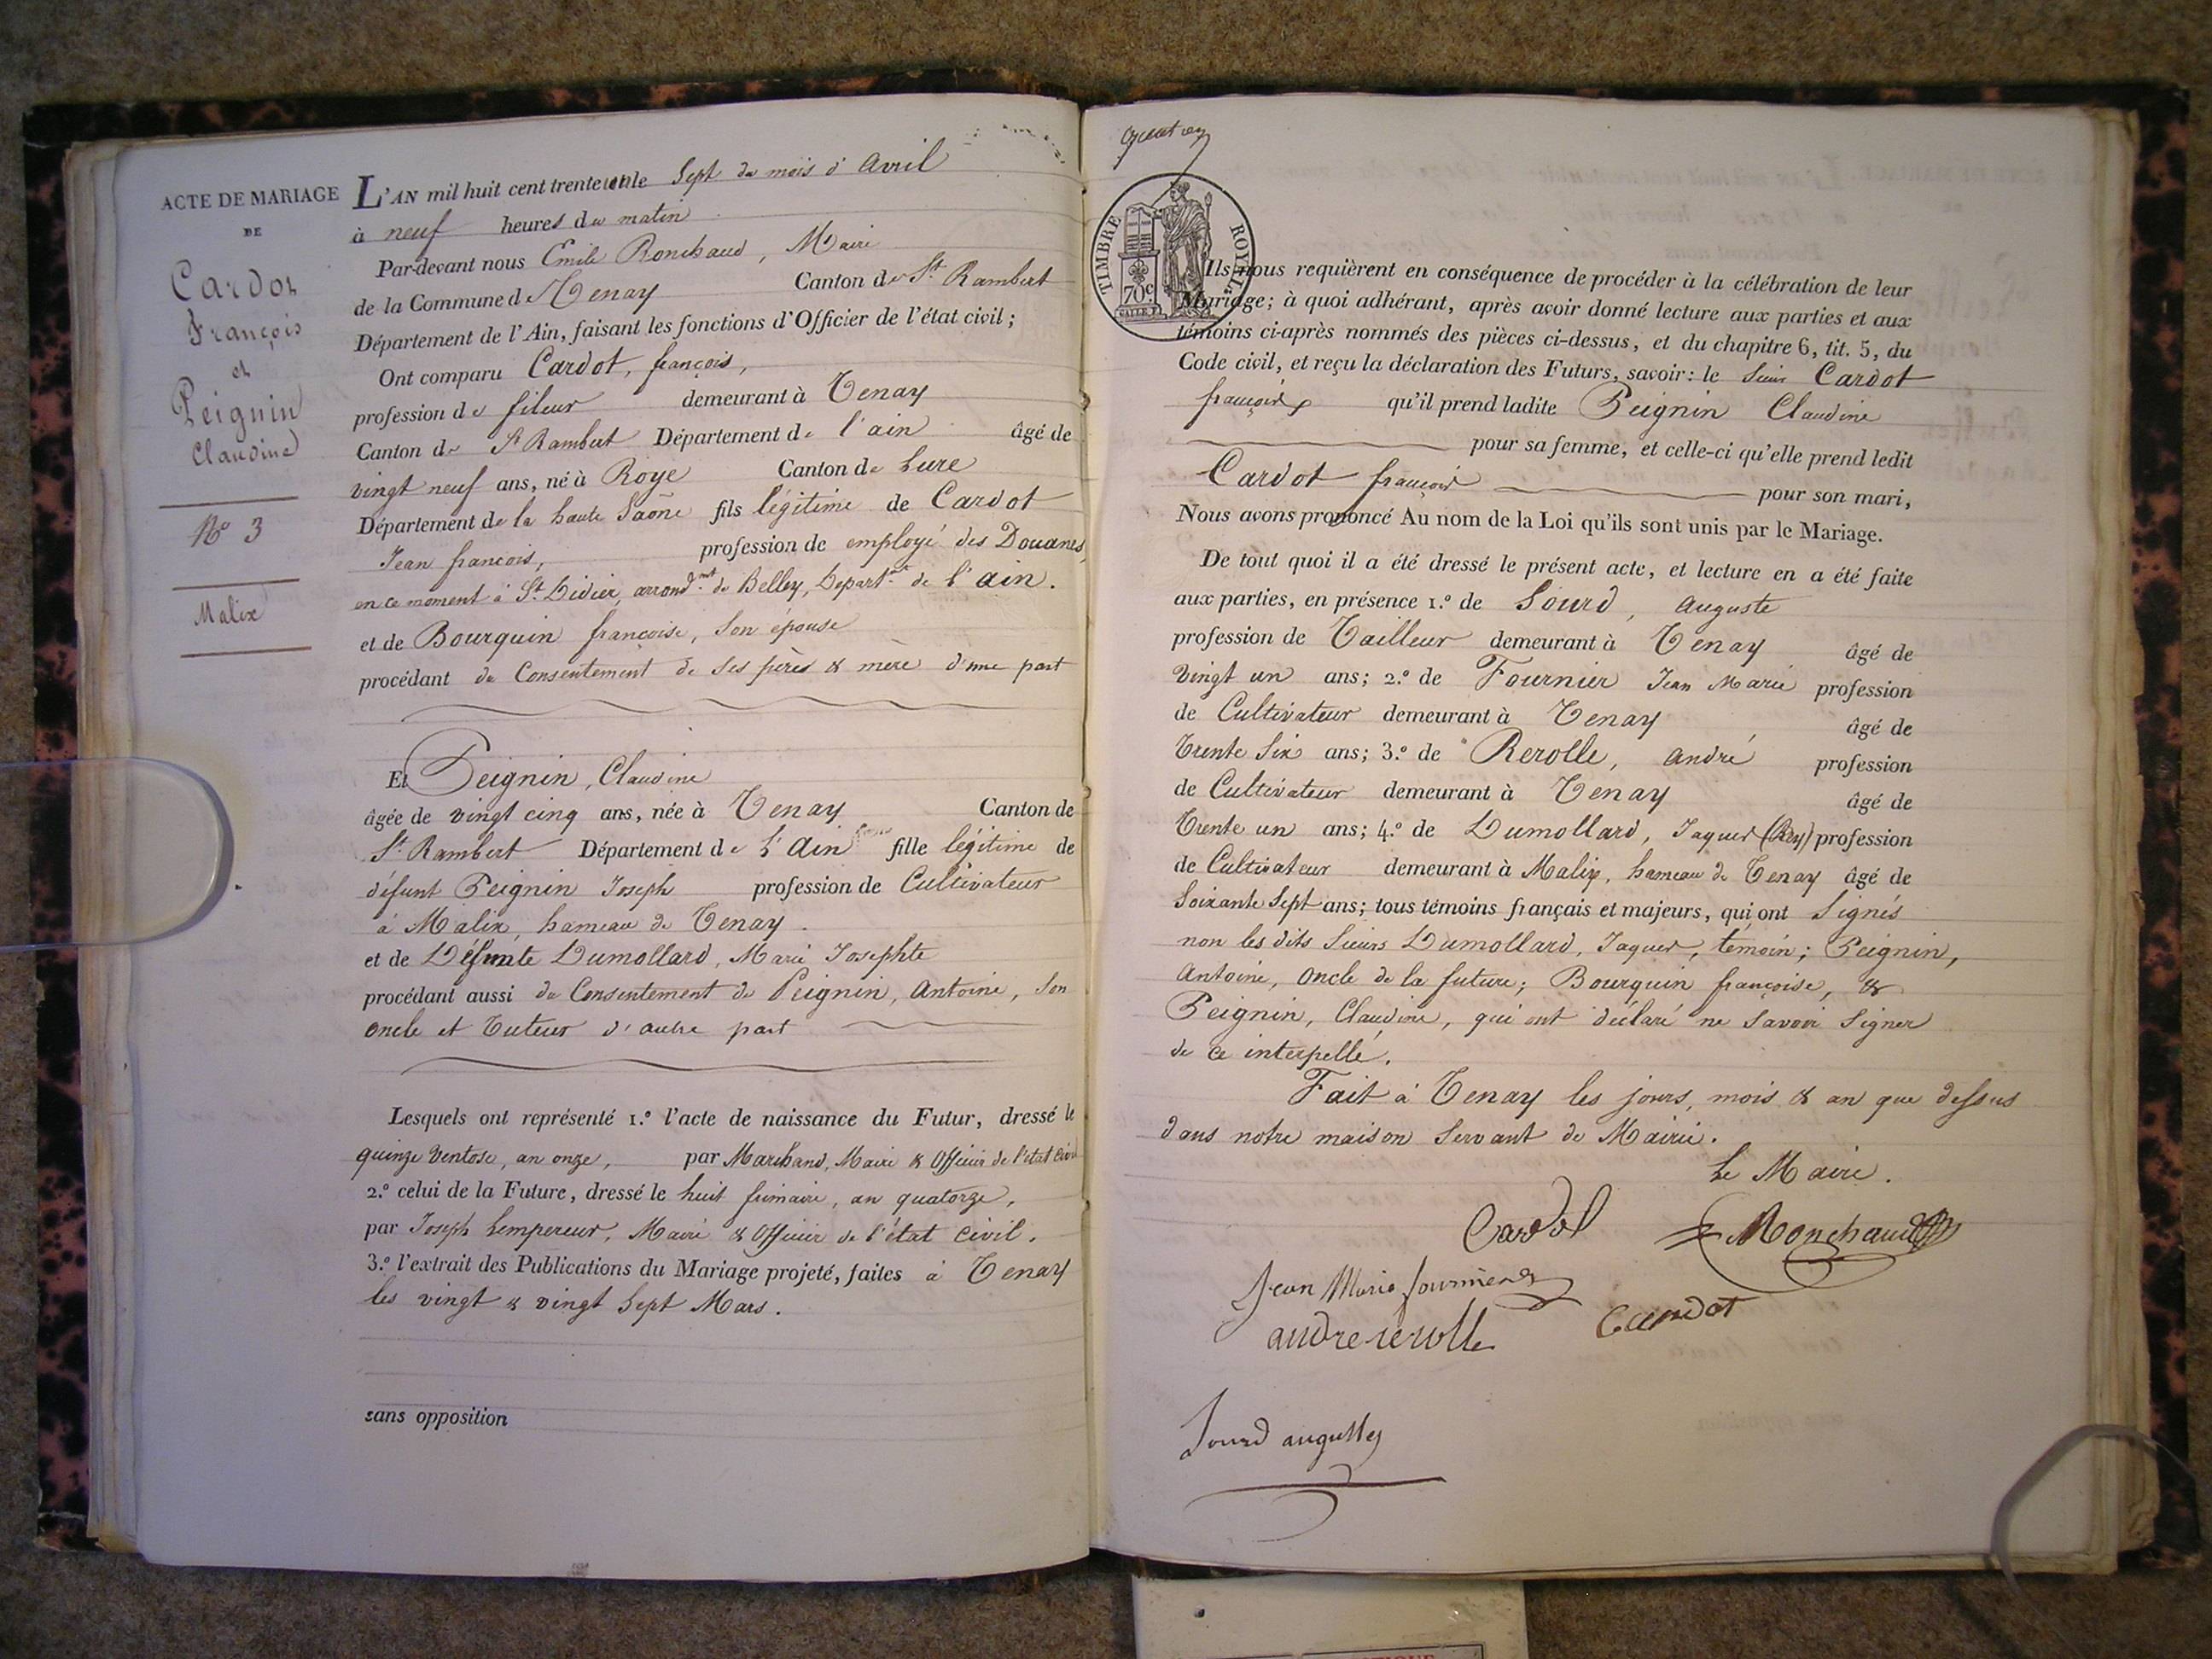 ACTE DE MARIAGE
DE
Cardot
François
et
Peignin
Claudine
N.º 3
Malix
L'AN mil huit cent trente le Sept du mois d'avril
à neuf heures du matin
Par-devant nous Emile Ronchaud, Maire
de la Commune de Tenay Canton de St. Rambert
Département de l'Ain, faisant les fonctions d'Officier de l'état civil;
Ont comparu Cardot, françois,
profession de fileur demeurant à Tenay
Canton de St Rambert Département de l'ain âgé de
vingt neuf ans, né à Roye Canton de Lure
Département de la haute Saône fils légitime de Cardot
Jean françois, profession de employé des Douanes,
en ce moment à St. Didier, arrondmt. de Belley, Départ.nt de l'ain.
et de Bourquin françoise, Son épouse
procédant du Consentement de Ses pères & mère d'une part
Et Peignin, Claudine
âgée de vingt cinq ans, née à Tenay Canton de
St. Rambert Département de l'Ain fille légitime de
défunt Peignin Joseph profession de Cultivateur
à Malix, hameau de Tenay.
et de Défunte Dumollard, Marie Josephte
procédant aussi du Consentement de Peignin, Antoine, Son
oncle et Tuteur d'autre part
Lesquels ont représenté 1.º l'acte de naissance du Futur, dressé le
quinze Ventose, an onze, par Marchand, Maire & Officier de l'état Civil
2.º celui de la Future, dressé le huit frimaire, an quatorze,
par Joseph Lempereur, Maire & Officier de l'état civil.
3.º l'extrait des Publications du Mariage projeté, faites à Tenay
les vingt & vingt Sept Mars.
sans opposition
TIMBRE ROYAL
70c.
Ils nous requièrent en conséquence de procéder à la célébration de leur
Mariage; à quoi adhérant, après avoir donné lecture aux parties et aux
témoins ci-après nommés des pièces ci-dessus, et du chapitre 6, tit. 5, du
Code civil, et reçu la déclaration des Futurs, savoir: le Sieur Cardot
françois qu'il prend ladite Peignin Claudine
pour sa femme, et celle-ci qu'elle prend ledit
Cardot françois pour son mari,
Nous avons prononcé Au nom de la Loi qu'ils sont unis par le Mariage.
De tout quoi il a été dressé le présent acte, et lecture en a été faite
aux parties, en présence 1.º de Sourd, auguste
profession de Tailleur demeurant à Tenay âgé de
Vingt un ans; 2.º de Fournier Jean Marie profession
de Cultivateur demeurant à Tenay âgé de
Trente Six ans; 3.º de Rerolle, andré profession
de Cultivateur demeurant à Tenay âgé de
Trente un ans; 4.º de Dumollard, Jaquer (Rey) profession
de Cultivateur demeurant à Malix, hameau de Tenay âgé de
Soixante Sept ans; tous témoins français et majeurs, qui ont Signés
non les dits Sieurs Dumollard, Jaquer, témoin; Peignin,
Antoine, oncle de la future; Bourquin françoise, &
Peignin, Claudine, qui ont déclaré ne Savoir Signer
de ce interpellé.
Fait à Tenay les jours, mois & an que dessus
dans notre maison Servant de Mairie.
Le Maire.
Cardot Ronchaud
Jean Marie fournier
andre rerolle Cardot
Sourd auguste